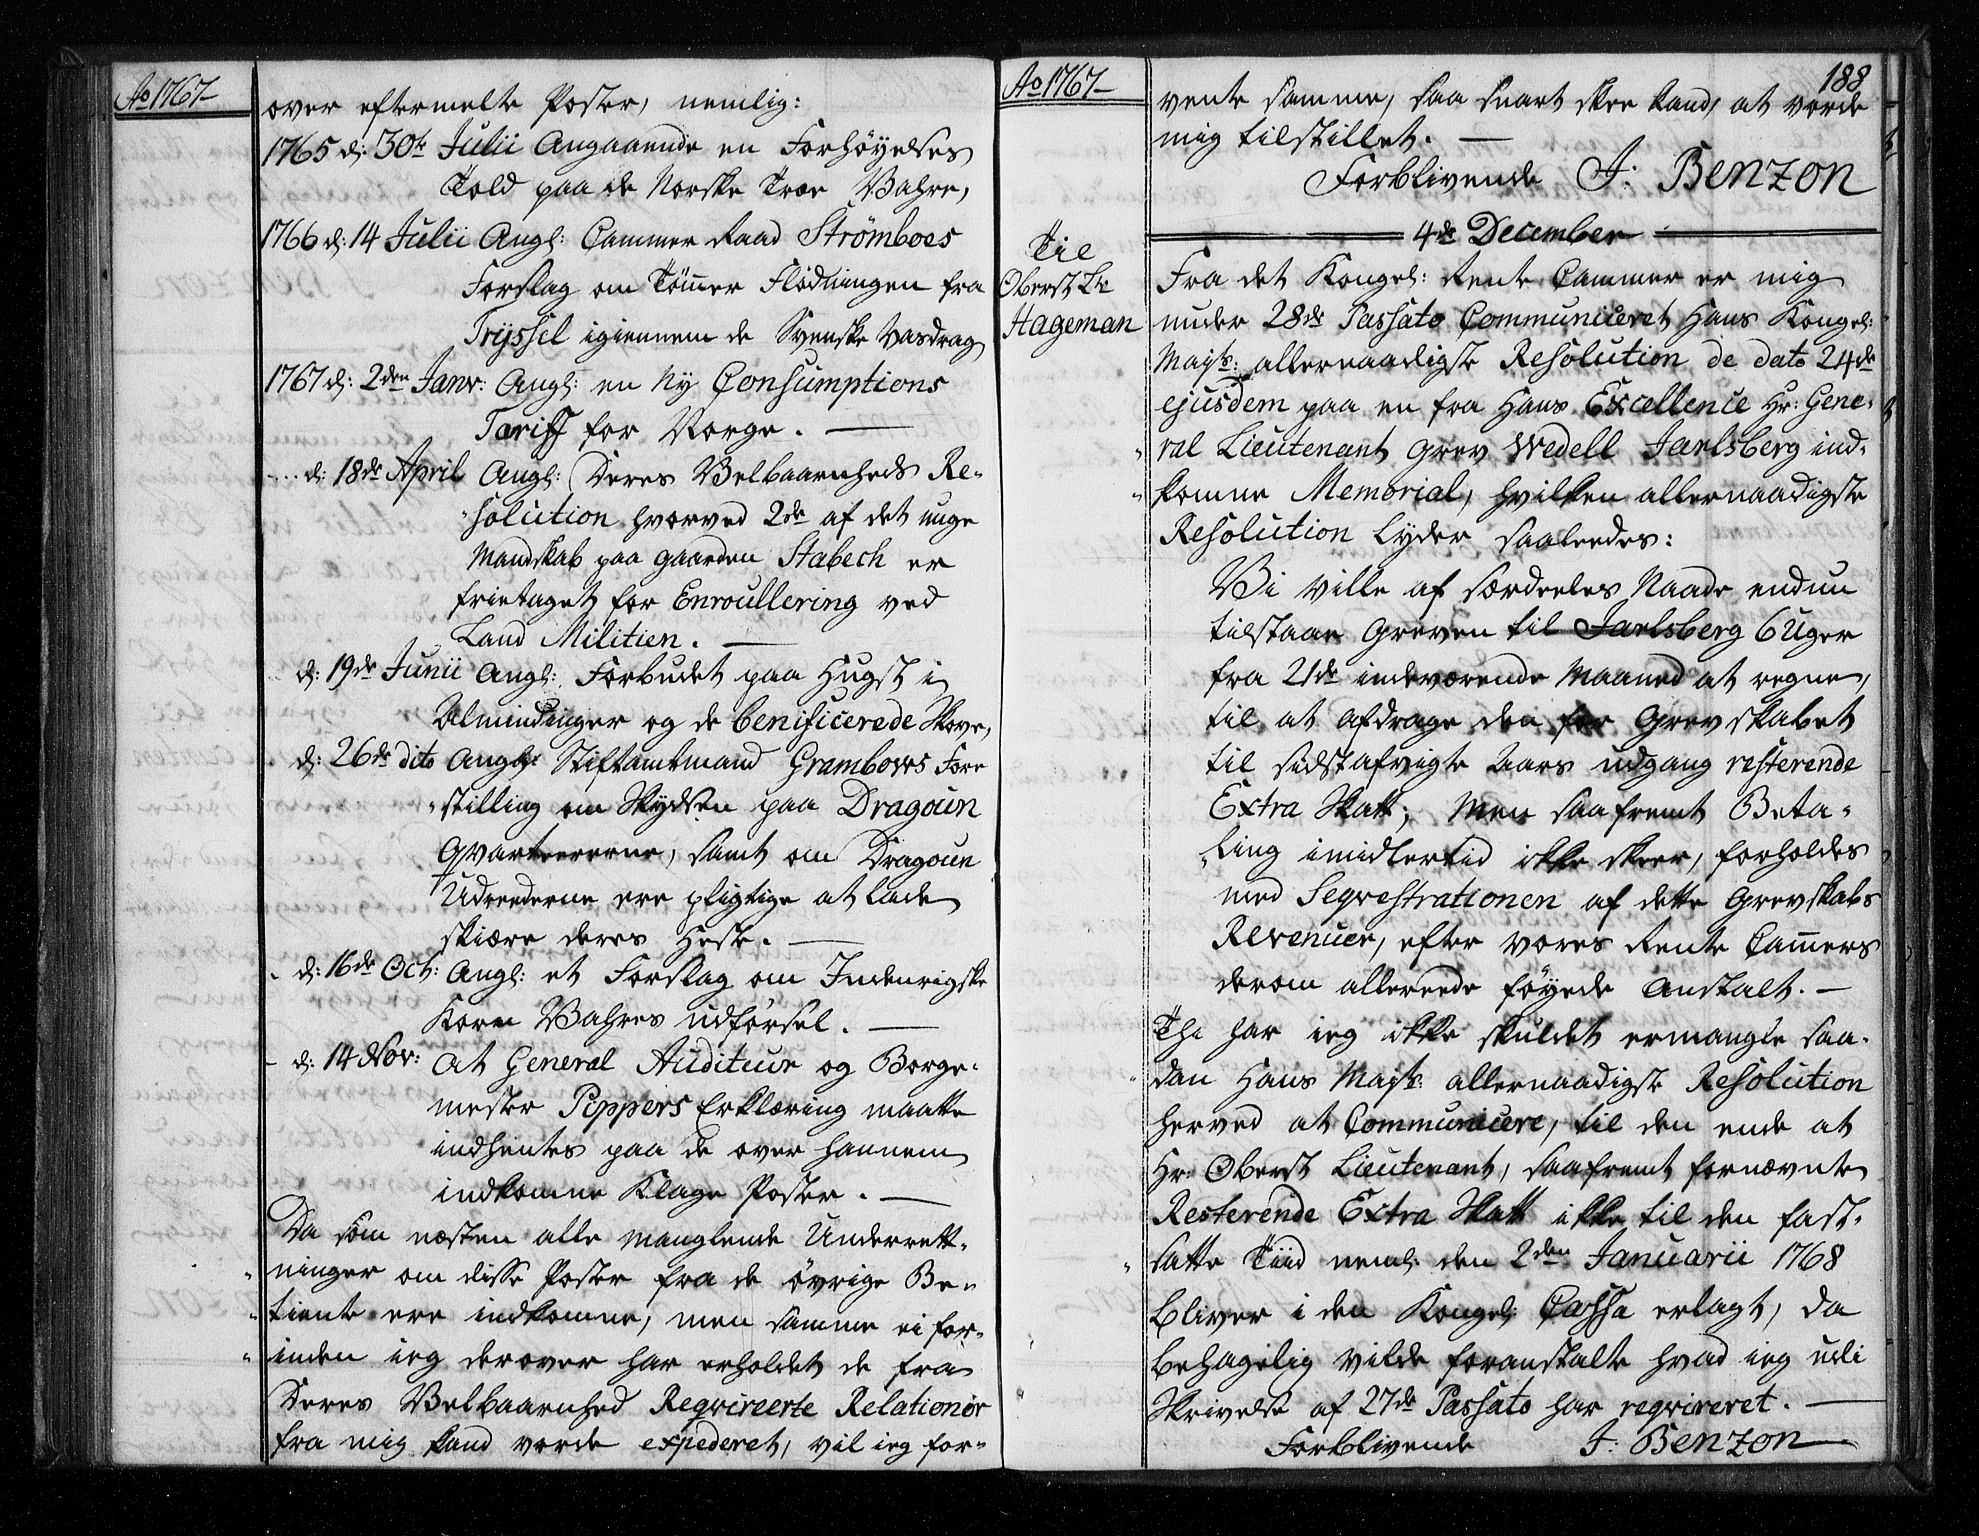 Ao 1767
over eftermelte Poster, nemlig:
1765 d: 30te Julii Angaaende en Forhøyelses
Told paa de Norske Træe Vahre,
1766 d: 14 Julii Angl: Cammer Raad Strømboes
Forslag om Tømer Flødningen fra
Tryssel igiennem de Svenske Vasdrag
1767 d: 2den Janv: Angl: en Ny Consumptions
Tariff for Norge.
d: 18de April Angl: Deres Velbaarenheds Re-
solution hvorved 2de af det unge
Mandskab paa gaarden Stabech er
frietaget for Enroullering ved
Land Militien.
d: 19de Junii Angl: Forbudet paa Hugst i
Almindinger og de beneficerede Skove,
d: 26de dito Angl: Stiftamtmand Grambows Fore
stilling om Skydsen paa Dragoun
Qvarteererne, samt om Dragoun
Udreederne ere pligtige at lade
skiære deres Heste.
d: 16de Oct: Angl: et Forslag om Indenrigske
Korn Vahres udførsel.
d: 14 Nov: At General Auditeur og Borge-
mester Peppers Erklæring maatte
indhentes paa de over hannem
indkomne Klage Poster.
Da som næsten alle manglende Underrett-
ninger om disse Poster fra de øvrige Be-
tiente ere indkomne, men samme ei for-
inden ieg derover har erholdet de fra
Deres Velbaarenhed Reqvireerte Relationer
fra mig kand vorde expederet, vil ieg for-
Ao 1767
188
vente samme, saa snart skee kand, at vorde
mig tilstillet.
Forblivende J: Benzon
4de December
Til
Oberst Lt:
Hageman
Fra det Kongel: Rente Cammer er mig
under 28de Passato Communiceret Hans Kongel:
Majts: allernaadigste Resolution de dato 24de
ejusdem paa en fra Hans Excellence Hr: Gene-
ral Lieutenant Grev Wedell Jarlsberg ind-
komne Memorial, hvilken allernaadigste
Resolution lyder saaleedes:
Vi ville af særdeeles Naade endnu
tilstaae Greven til Jarlsberg 6 Uger
fra 21de indeværende Maaned at regne,
til at afdrage den for Grevskabet
til sidstafvigte Aars udgang resterende
Extra Skatt; Men saafremt Beta-
ling imidlertid ikke skeer, forholdes
med Seqvestrationen af dette Grevskabs
Revenuer, efter vores Rente Camers
derom allereede føyede Anstalt.
Thi har ieg ikke skuldet ermangle saa-
dan Hans Majts: allernaadigste Resolution
herved at Communicere, til den ende at
Hr: Oberst Lieutenant, saafremt fornævnte
Resterende Extra Skatt ikke til den fast-
satte Tiid neml: den 2den Januarii 1768
bliver i den Kongel: Cassa erlagt, da
behagelig vilde foranstalte hvad ieg udi
Skrivelse af 27de Passato har reqvireret.
Forblivende J: Benzon